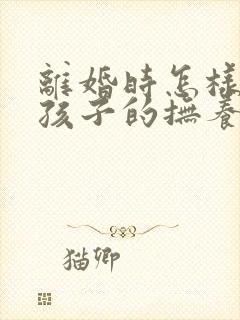 離婚時怎樣
孩子的撫養
猫卿